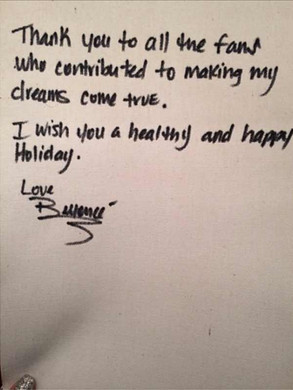 Thank you to all the fans
who contributed to making my
dreams come true.
I wish you a healthy and happy
Holiday.
Love
Beyoncé